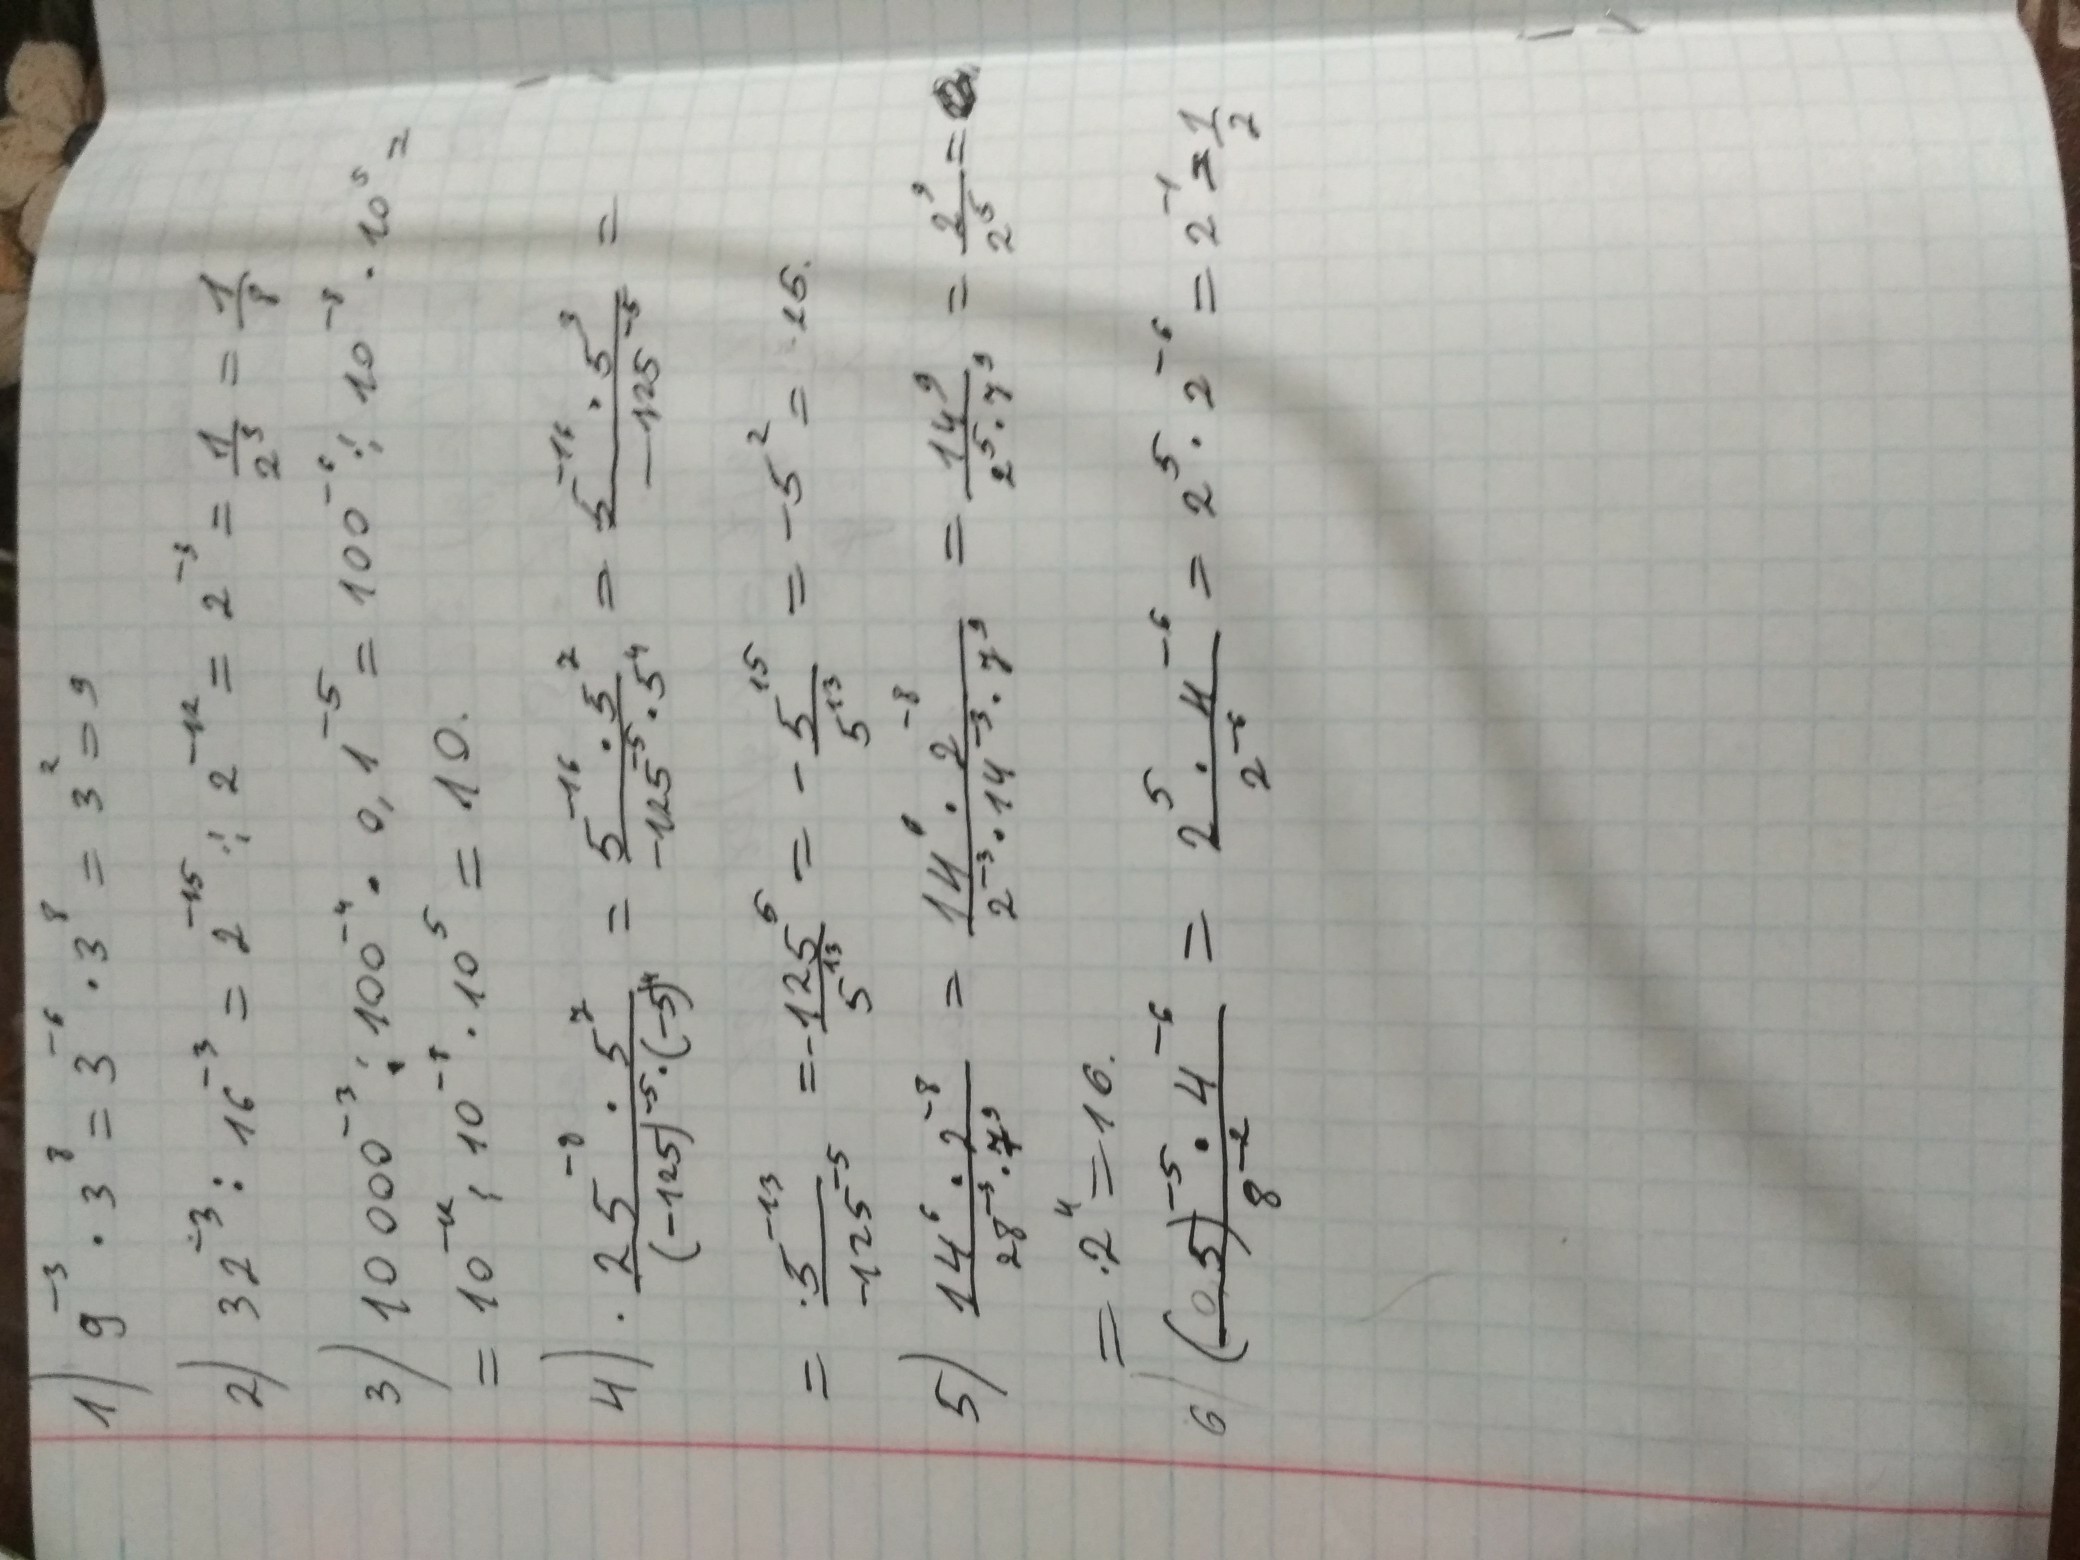 1) 9^-3 · 3^8 = 3^-6 · 3^8 = 3^2 = 9
2) 32^-3 : 16^-3 = 2^-15 : 2^-12 = 2^-3 = 1/2^3 = 1/8
3) 10000^-3 : 100^-4 · 0,1^-5 = 100^-6 : 10^-8 · 10^5 =
= 10^-12 : 10^-8 · 10^5 = 10.
4) · (25^-8 · 5^7)/((-125)^-5 · (-5)^4) = (5^-16 · 5^7)/(-125^-5 · 5^4) = (5^-16 · 5^3)/(-125^-5) =
= 5^-13/(-125^-5) = -125^5/5^13 = - 5^15/5^13 = -5^2 = -25.
5) (14^6 · 2^-8)/(28^-3 · 7^9) = (14^6 · 2^-8)/(2^-3 · 14^-3 · 7^9) = 14^9/(2^5 · 7^9) = 2^9/2^5 =
= 2^4 = 16.
6) ((0,5)^-5 · 4^-6)/8^-2 = (2^5 · 4^-6)/2^-6 = 2^5 · 2^-6 = 2^-1 = 1/2